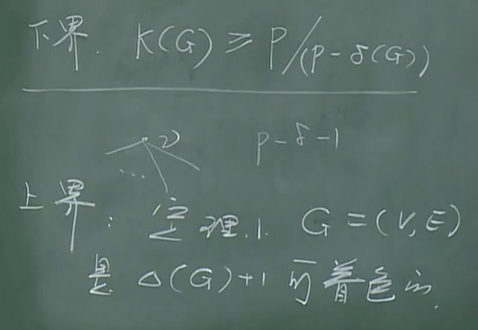 下界. K(G) ≥ P/(P-δ(G))
υ
P-δ-1
...
上界: 定理.1. G=(V,E)
是 Δ(G)+1 可着色的.